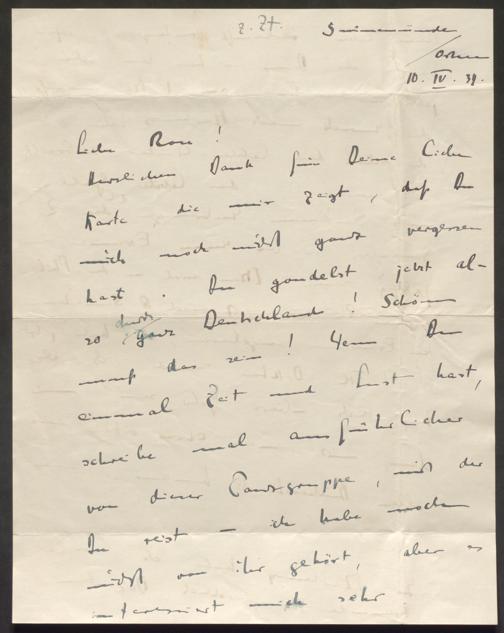 z. Zt. Swinemünde
Ostern
10. IV. 39.
Liebe Rose!
Herzlichen Dank für Deine liebe
Karte die mir zeigt, daß Du
mich noch nicht ganz vergessen
hast. Du gondelst jetzt al-
so durch ganz Deutschland! Schön
muß das sein! Wenn Du
einmal Zeit und Lust hast,
schreibe mal ausführlicher
von dieser Tanzgruppe, mit der
Du reist – ich habe noch
nichts von ihr gehört, aber es
interessiert mich sehr